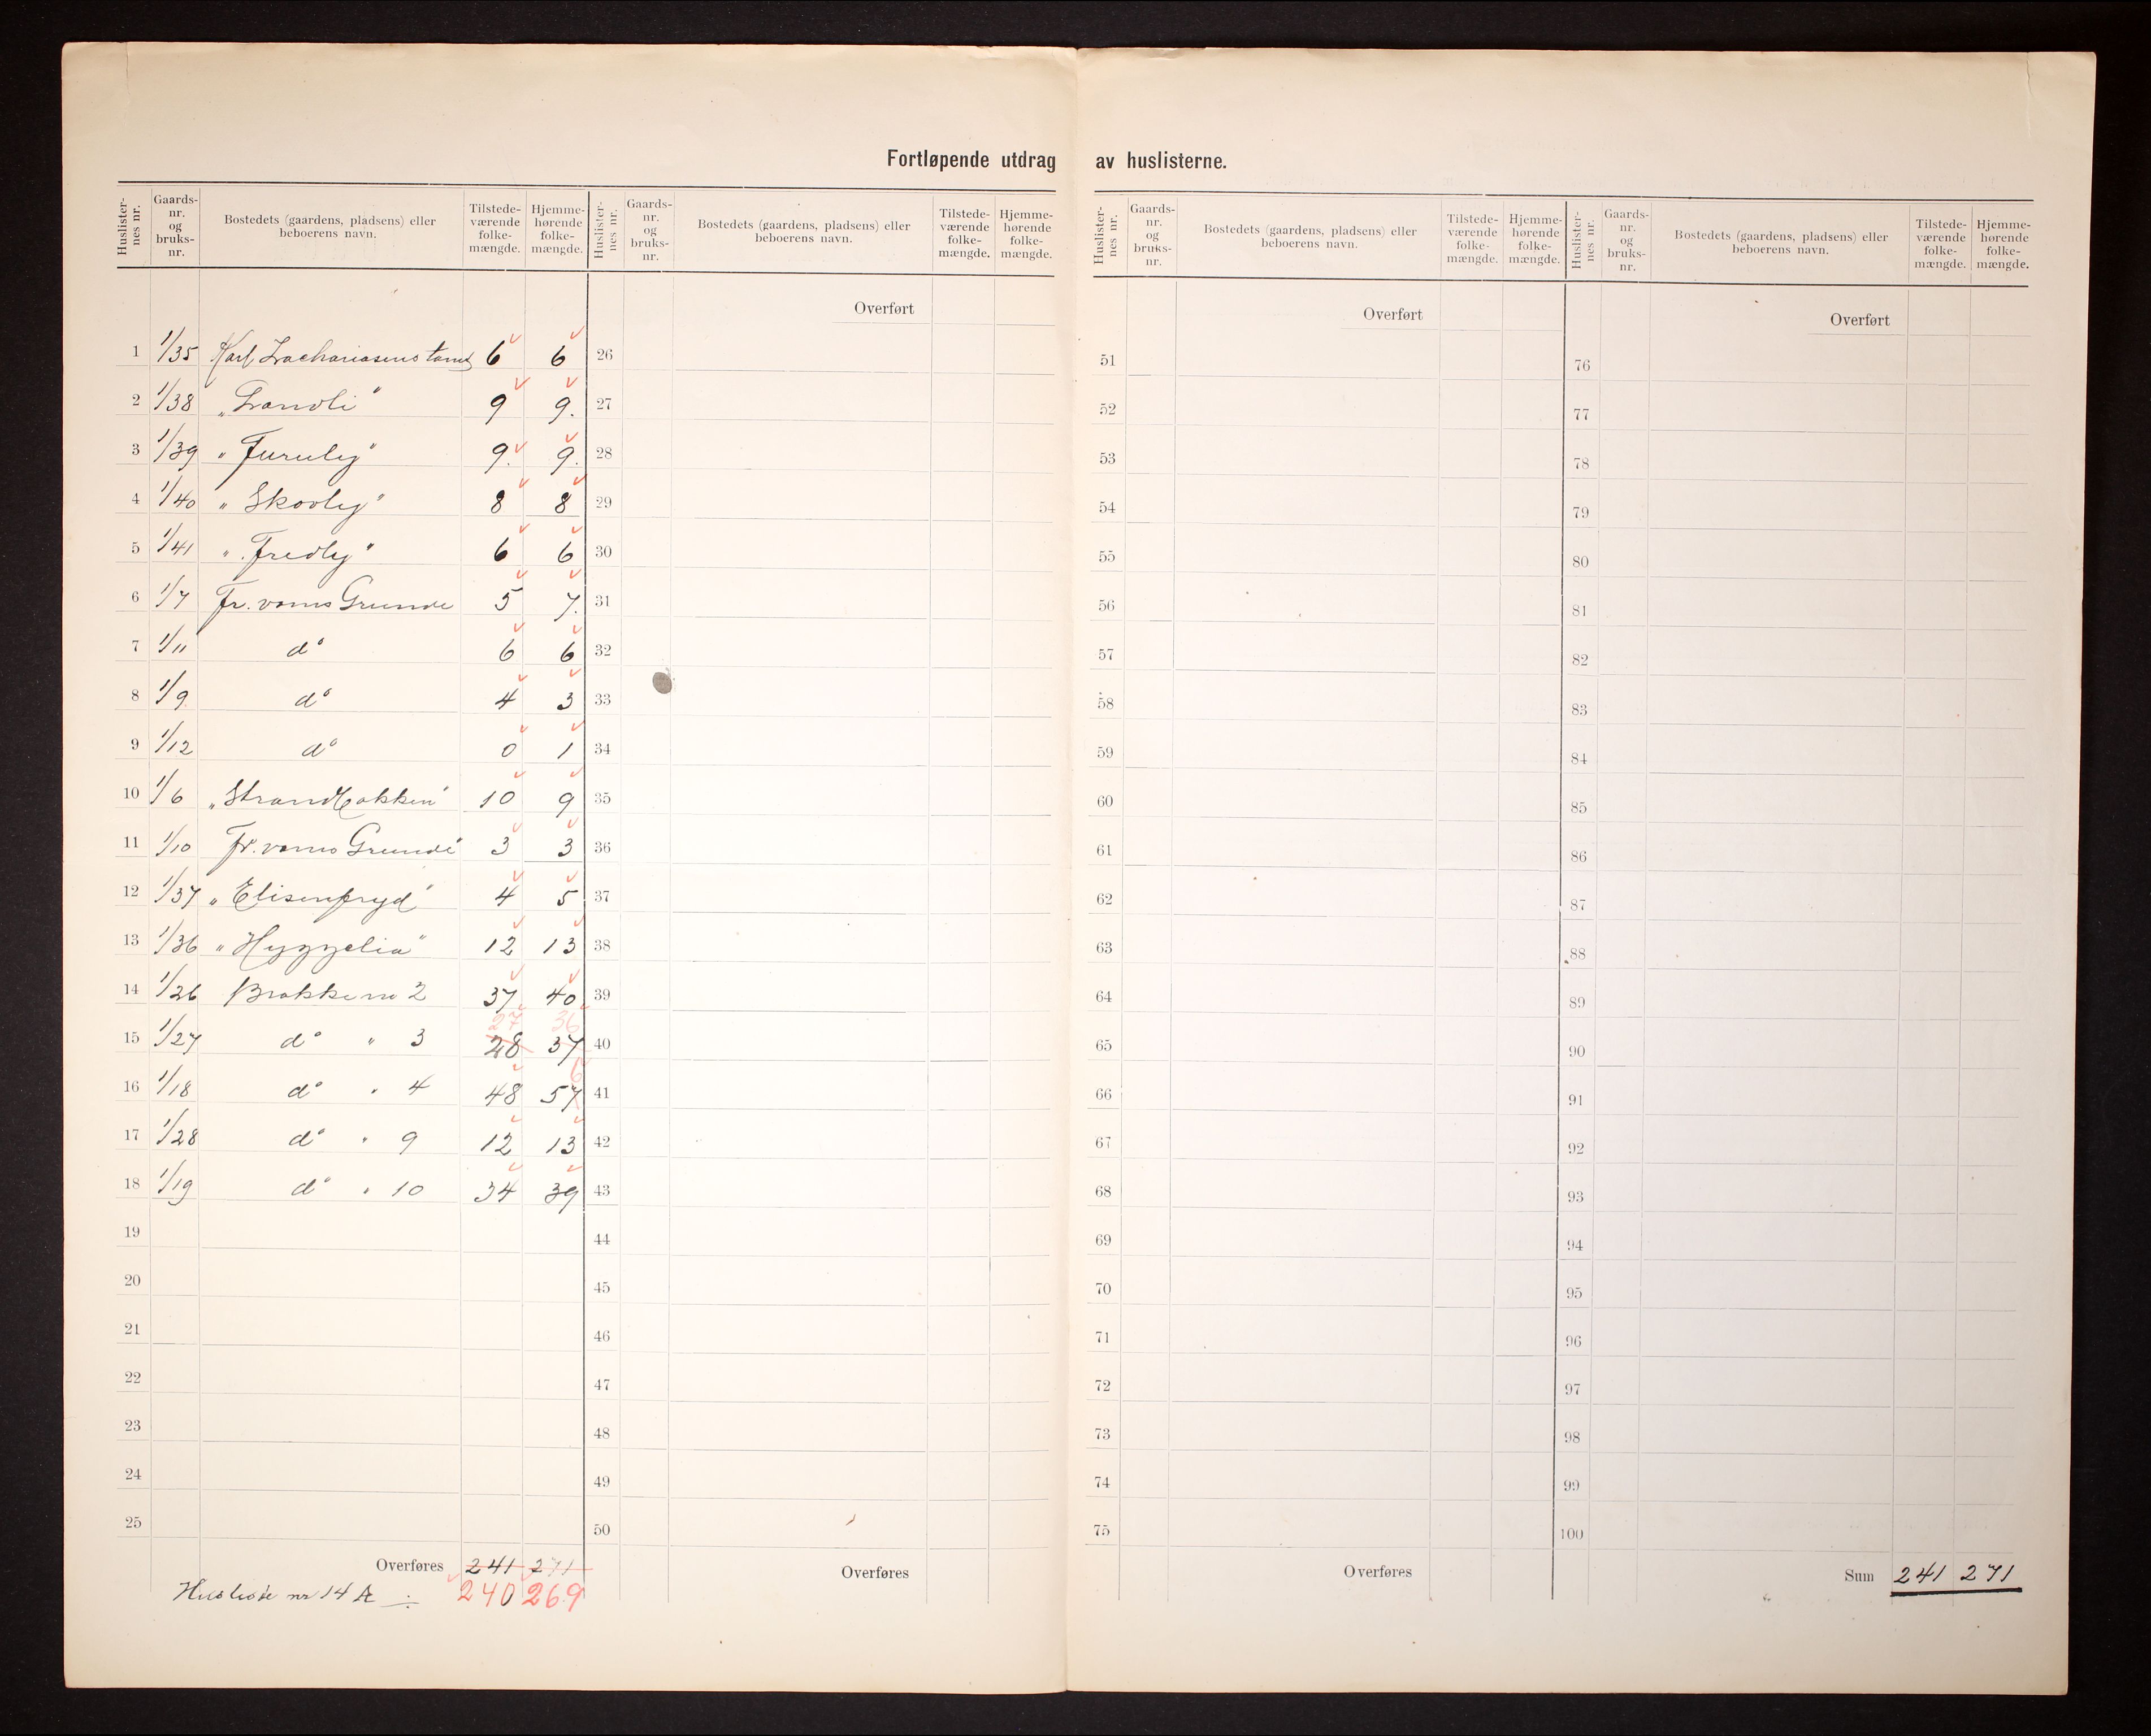 Fortløpende utdrag av huslisterne.
Huslister-nes nr. Gaards-nr. og bruks-nr. Bostedets (gaardens, pladsens) eller beboerens navn. Tilstede-værende folke-mængde. Hjemme-hørende folke-mængde.
1 1/35 Karl Zachariasens tomt 6 6
2 1/38 „Granoli" 9 9.
3 1/39 „Furuly" 9. 9.
4 1/40 „Skovly" 8 8
5 1/41 „Fredly" 6 6
6 1/7 Fr. vams Grunde 5 7.
7 1/11 do 6 6
8 1/9 do 4 3
9 1/12 do 0 1
10 1/6 „Strandbakken" 10 9
11 1/10 Fr. vams Grunde 3 3
12 1/37 „Elisenfryd" 4 5
13 1/36 „Hyggelia" 12 13
14 1/26 Brakke no 2 37 40
27 36
15 1/27 do " 3 28 37
6
16 1/18 do " 4 48 57
17 1/28 do " 9 12 13
18 1/19 do " 10 34 39
19
20
21
22
23
24
25
Overføres 241 271
Husliste nr 14 A ÷ 240 269
Huslister-nes nr. Gaards-nr. og bruks-nr. Bostedets (gaardens, pladsens) eller beboerens navn. Tilstede-værende folke-mængde. Hjemme-hørende folke-mængde.
Overført
26
27
28
29
30
31
32
33
34
35
36
37
38
39
40
41
42
43
44
45
46
47
48
49
50
Overføres
Huslister-nes nr. Gaards-nr. og bruks-nr. Bostedets (gaardens, pladsens) eller beboerens navn. Tilstede-værende folke-mængde. Hjemme-hørende folke-mængde.
Overført
51
52
53
54
55
56
57
58
59
60
61
62
63
64
65
66
67
68
69
70
71
72
73
74
75
Overføres
Huslister-nes nr. Gaards-nr. og bruks-nr. Bostedets (gaardens, pladsens) eller beboerens navn. Tilstede-værende folke-mængde. Hjemme-hørende folke-mængde.
Overført
76
77
78
79
80
81
82
83
84
85
86
87
88
89
90
91
92
93
94
95
96
97
98
99
100
Sum 241 271